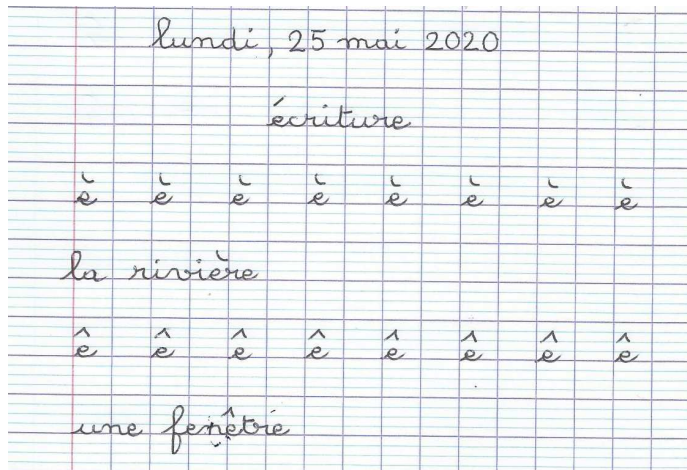 lundi, 25 mai 2020
écriture
è è è è è è è è
la rivière
ê ê ê ê ê ê ê ê
une fenêtre